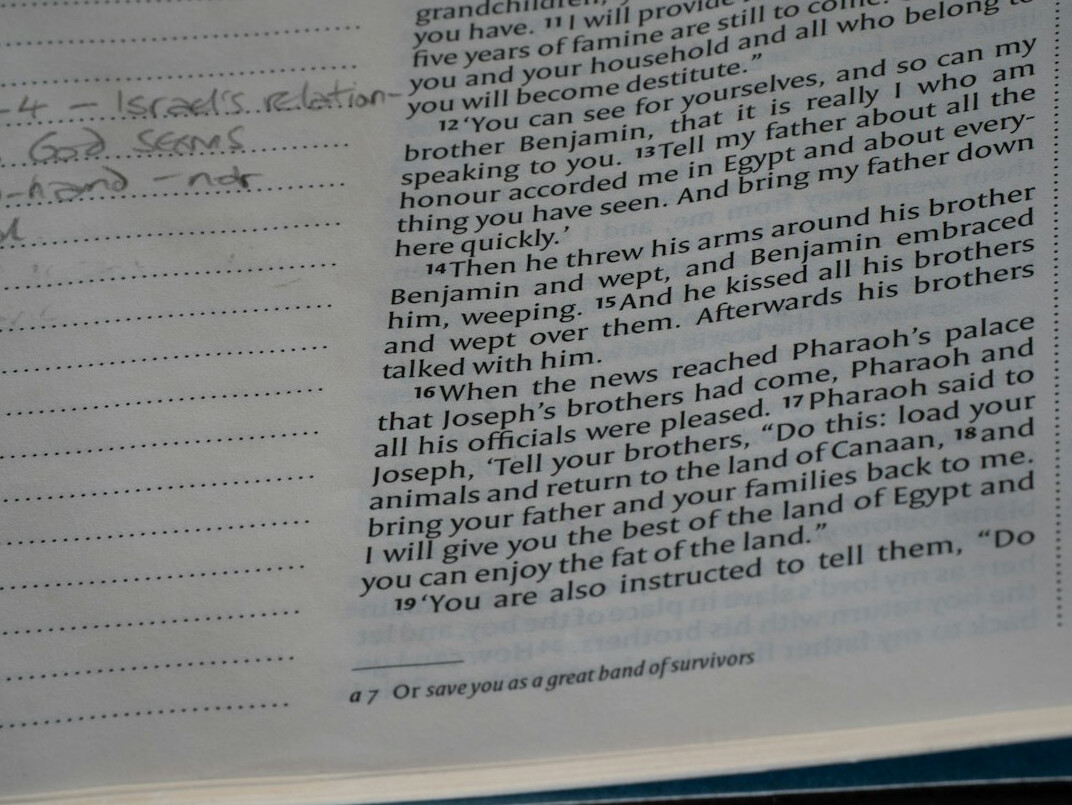 -4 - Israel's relation-
God seems
-hand - not
grandchildren,
you have. 11 I will provide
five years of famine are still to come.
you and your household and all who belong to
you will become destitute.”
12 ‘You can see for yourselves, and so can my
brother Benjamin, that it is really I who am
speaking to you. 13 Tell my father about all the
honour accorded me in Egypt and about every-
thing you have seen. And bring my father down
here quickly.’
14 Then he threw his arms around his brother
Benjamin and wept, and Benjamin embraced
him, weeping. 15 And he kissed all his brothers
and wept over them. Afterwards his brothers
talked with him.
16 When the news reached Pharaoh’s palace
that Joseph’s brothers had come, Pharaoh and
all his officials were pleased. 17 Pharaoh said to
Joseph, ‘Tell your brothers, “Do this: load your
animals and return to the land of Canaan, 18 and
bring your father and your families back to me.
I will give you the best of the land of Egypt and
you can enjoy the fat of the land.”
19 ‘You are also instructed to tell them, “Do
a 7 Or save you as a great band of survivors